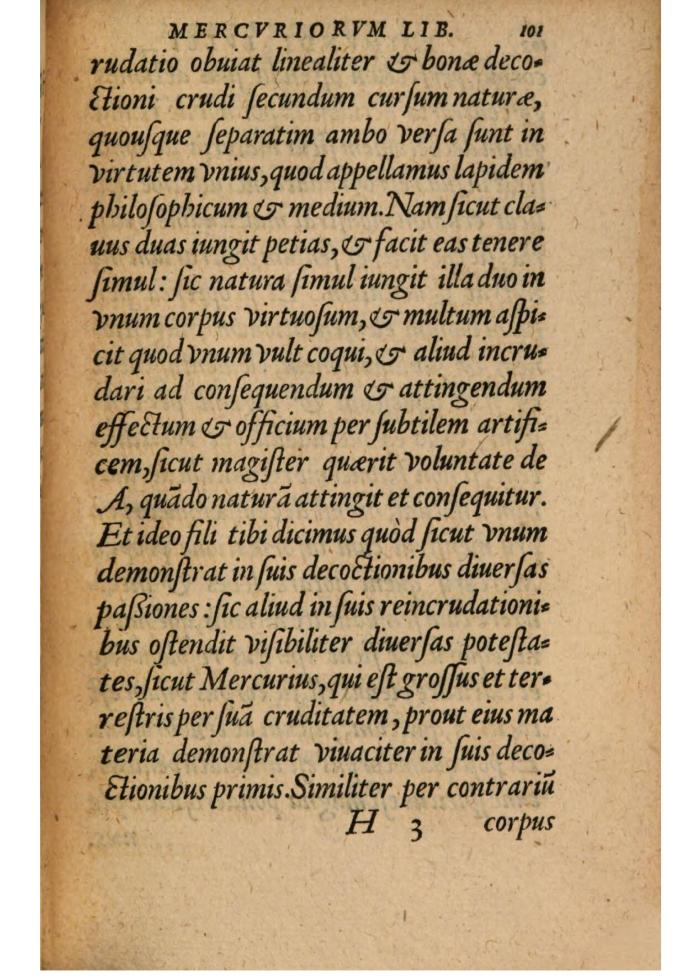 MERCVRIORVM LIB. 101
rudatio obuiat linealiter & bonæ deco-
ctioni crudi ſecundum curſum naturæ,
quouſque ſeparatim ambo verſa ſunt in
virtutem vnius, quod appellamus lapidem
philoſophicum & medium. Nam ſicut cla-
uus duas iungit petias, & facit eas tenere
ſimul: ſic natura ſimul iungit illa duo in
vnum corpus virtuoſum, & multum aſpi-
cit quod vnum vult coqui, & aliud incru-
dari ad conſequendum & attingendum
effectum & officium per ſubtilem artifi-
cem, ſicut magiſter quærit voluntate de
A, quãdo naturã attingit et conſequitur.
Et ideo fili tibi dicimus quòd ſicut vnum
demonſtrat in ſuis decoctionibus diuerſas
paſsiones: ſic aliud in ſuis reincrudationi-
bus oſtendit viſibiliter diuerſas poteſta-
tes, ſicut Mercurius, qui eſt groſſus et ter-
reſtris per ſuã cruditatem, prout eius ma
teria demonſtrat viuaciter in ſuis deco-
ctionibus primis. Similiter per contrariũ
H 3 corpus